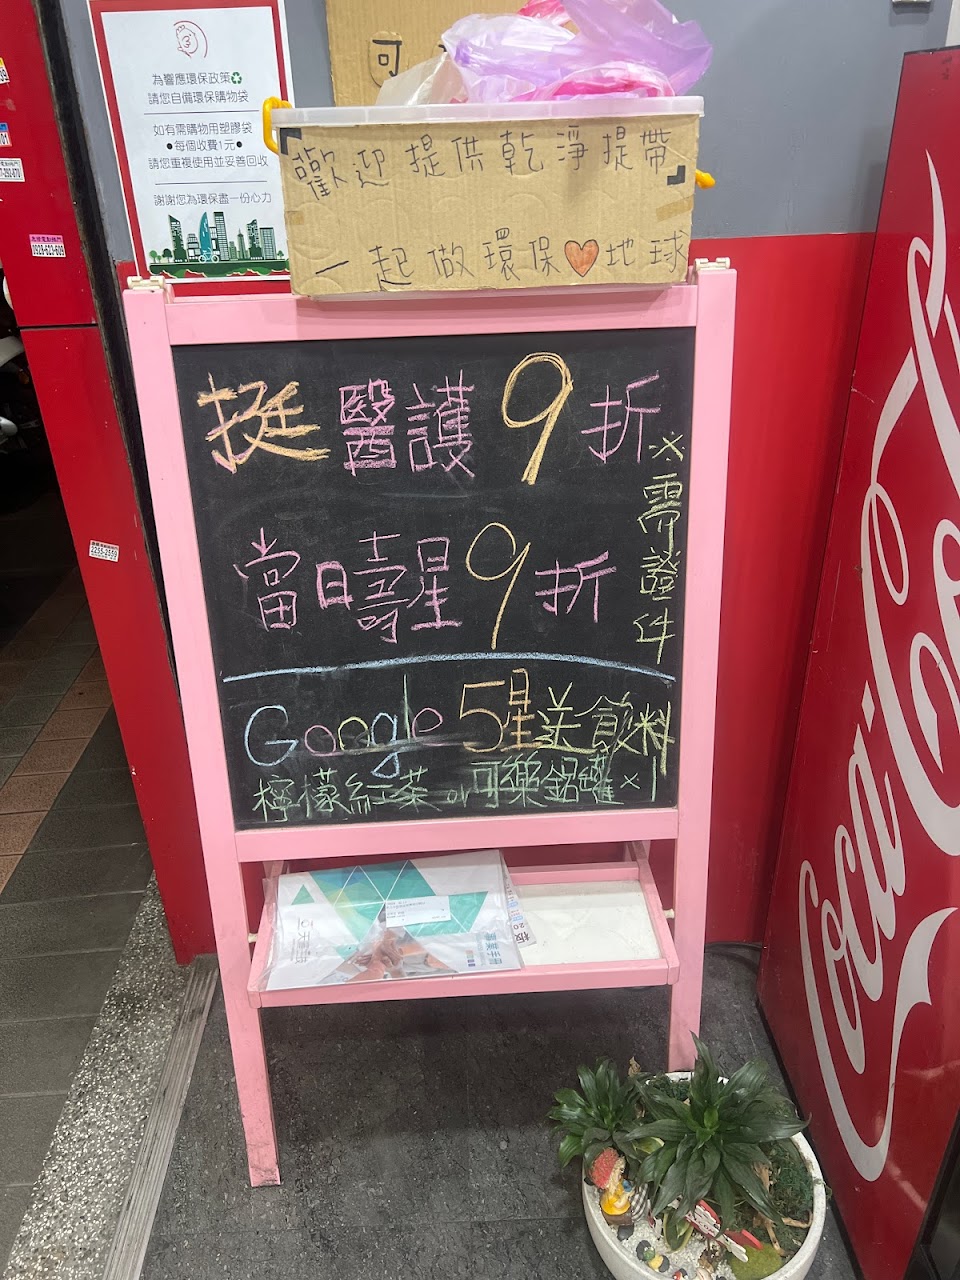 為響應環保政策♻
請您自備環保購物袋
如有需購物用塑膠袋
●每個收費1元●
請您重複使用並妥善回收
謝謝您為環保盡一份心力
可
歡迎提供乾淨提帶
一起做環保♡地球
挺醫護9折
當日壽星9折
※需證件
Google 5星送飲料
檸檬紅茶 or 可樂鋁罐×1
0925-623-609
2255-2559
Coca-Cola